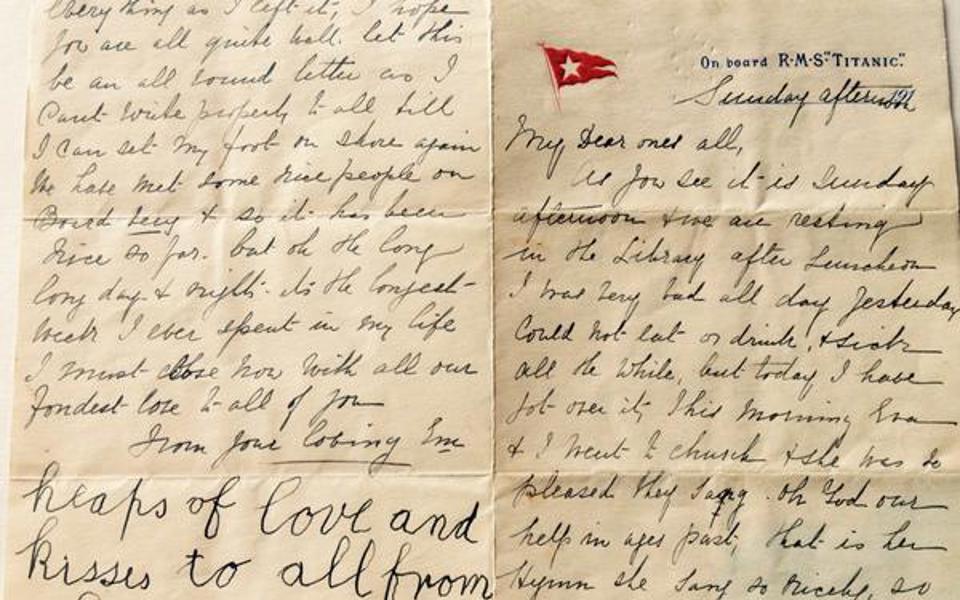 On board R·M·S "TITANIC".
Sunday afternoon 191
My Dear ones all,
As you see it is Sunday
afternoon & we are resting
in the Library after Luncheon
I was very bad all day yesterday
Could not eat or drink, & sick
all the while, but today I have
got over it, This morning Eva
& I went to church & she was so
pleased they sang . Oh God our
help in ages past, that is her
Hymn she sang so nicely, so
Everything as I left it, I hope
you are all quite well. let this
be an all round letter as I
Cant write properly to all till
I can set my foot on shore again
We have met some nice people on
Board Lucy & so it has been
nice so far. but oh the long
long days & nights. its the longest
week I ever spent in my life
I must close now with all our
fondest love to all of you
From your loving Em
heaps of love and
kisses to all from